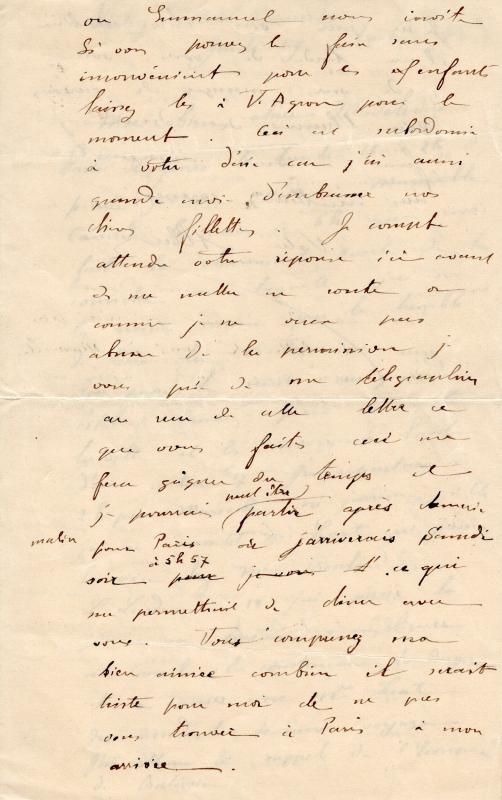 ou Emmanuel nous invite
Si vous pouvez le faire sans
inconvénient pour les enfants
laissez les à V. Agron pour le
moment. Ceci est subordonné
à votre désir car j'ai aussi
grande envie d'embrasser nos
chères fillettes. Je compte
attendre votre réponse ici avant
de me mettre en route or
comme je ne veux pas
abuser de la permission je
vous prie de me télégraphier
au reçu de cette lettre ce
que vous faites ceci me
fera gagner du temps et
je pourrais peut être partir après demain
matin
pour Paris où j'arriverais Samedi
soir à 5h57 pour je vous ce qui
me permettrait de diner avec
vous. Vous comprenez ma
bien aimée combien il serait
triste pour moi de ne pas
vous trouver à Paris à mon
arrivée.